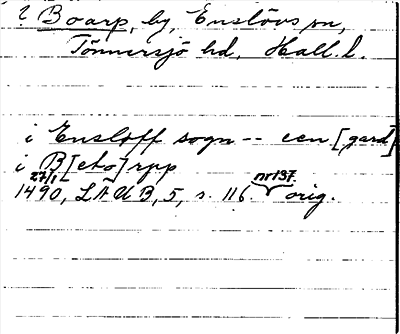 ? Boarp, by, Enslövs sn,
Tönnersjö hd, Hall. l.
i Ensloff sogn -- een [gard]
i B[eto]rpp
27/1 nr 137.
1490, LAUB, 5, s. 116. orig.